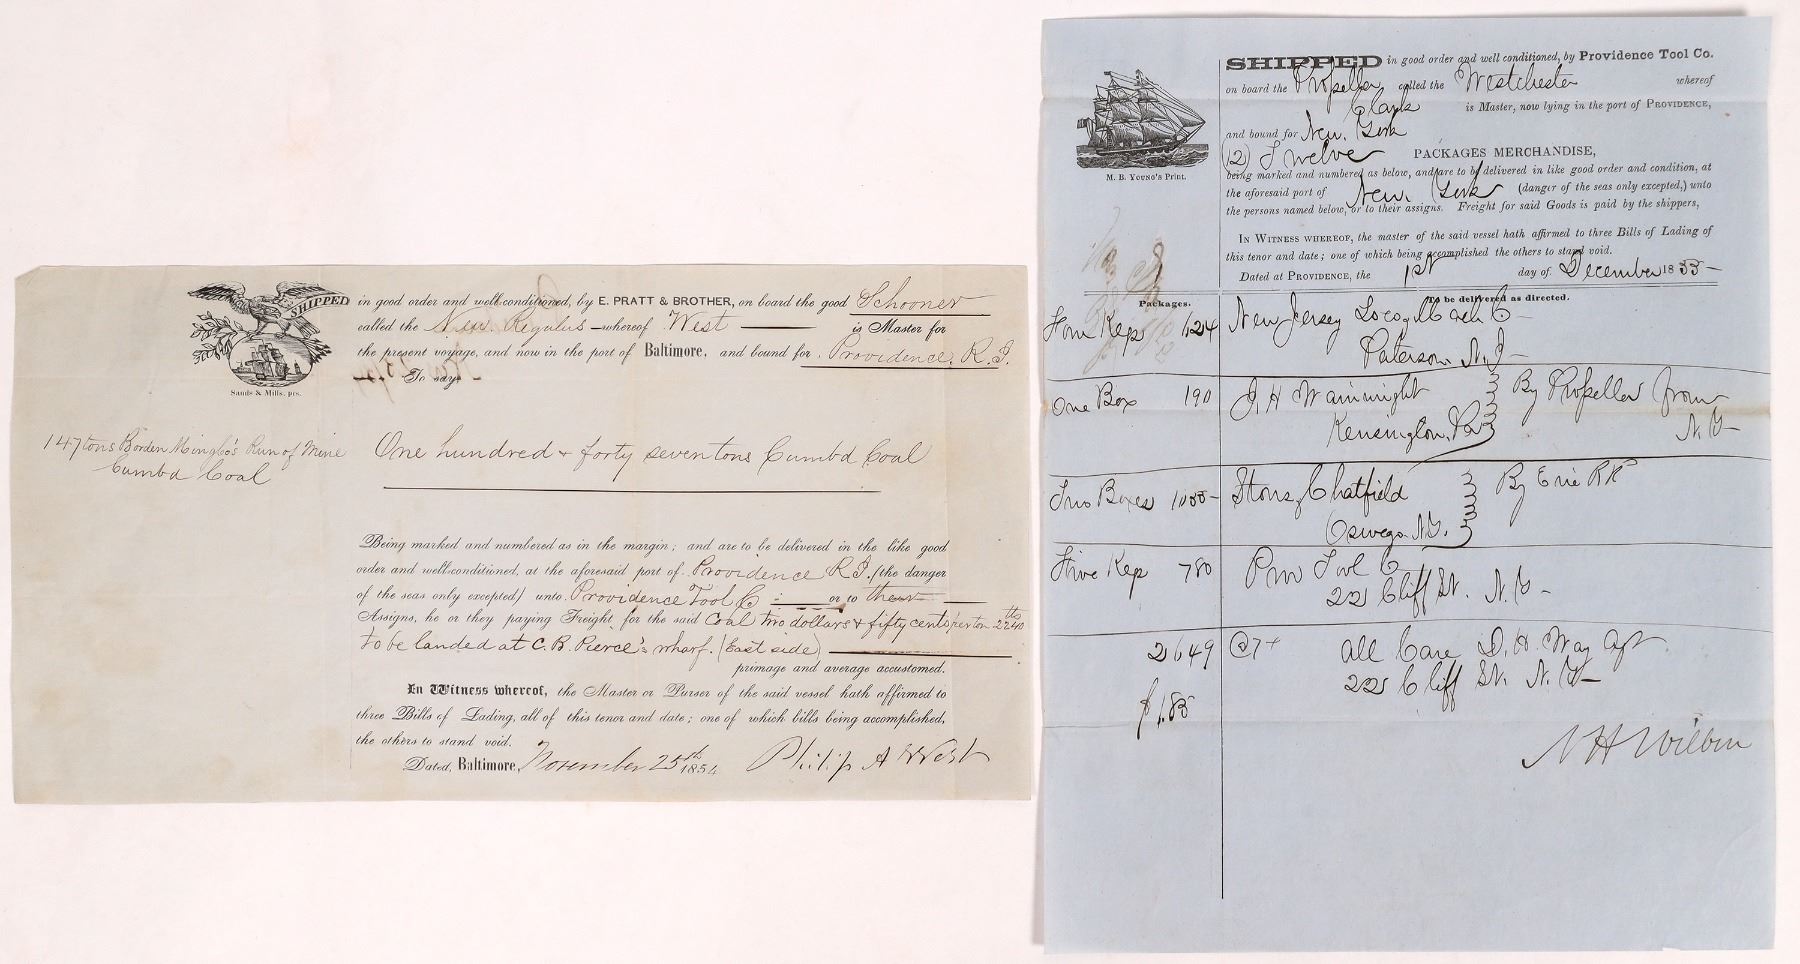 SHIPPED in good order and well conditioned, by E. PRATT & BROTHER, on board the good Schooner
called the New Regulus whereof West is Master for
the present voyage, and now in the port of Baltimore, and bound for Providence, R.I.
To say
Sands & Mills, prs.
147 tons Borden Mining Co's Run of Mine
Cumbd Coal
One hundred + forty seven tons Cumbd Coal
Being marked and numbered as in the margin; and are to be delivered in the like good
order and well-conditioned, at the aforesaid port of Providence R.I. (the danger
of the seas only excepted) unto Providence Tool Co or to their
Assigns, he or they paying Freight for the said Coal two dollars + fifty cents per ton 2240 lbs
to be landed at C. B. Pierce's wharf. (East side)
primage and average accustomed.
In Witness whereof, the Master or Purser of the said vessel hath affirmed to
three Bills of Lading, all of this tenor and date; one of which bills being accomplished,
the others to stand void.
Dated, Baltimore, November 25th 1854 Philip A West
SHIPPED in good order and well conditioned, by Providence Tool Co.
on board the Propeller called the Westchester whereof
Clark is Master, now lying in the port of PROVIDENCE,
and bound for New York
(12) Twelve PACKAGES MERCHANDISE,
being marked and numbered as below, and are to be delivered in like good order and condition, at
the aforesaid port of New York (danger of the seas only excepted,) unto
the persons named below, or to their assigns. Freight for said Goods is paid by the shippers,
M. B. YOUNG'S Print.
IN WITNESS WHEREOF, the master of the said vessel hath affirmed to three Bills of Lading of
this tenor and date; one of which being accomplished the others to stand void.
Dated at PROVIDENCE, the 1st day of December 1855
Packages. To be delivered as directed.
Four Kegs 624 New Jersey Loco & Mach Co
Paterson N.J
One Box 190 J. H Wainwright By Propeller from
Kensington, Pa N.Y
Two Boxes 1055 Stone, Chatfield By Erie RR
Oswego N.Y.
Five Kegs 780 Prov Tool Co
22 Cliff St. N.Y
2649 @7 All Care D. H. Way Agt
22 Cliff St. N.Y
$1.85
N H Wilbur